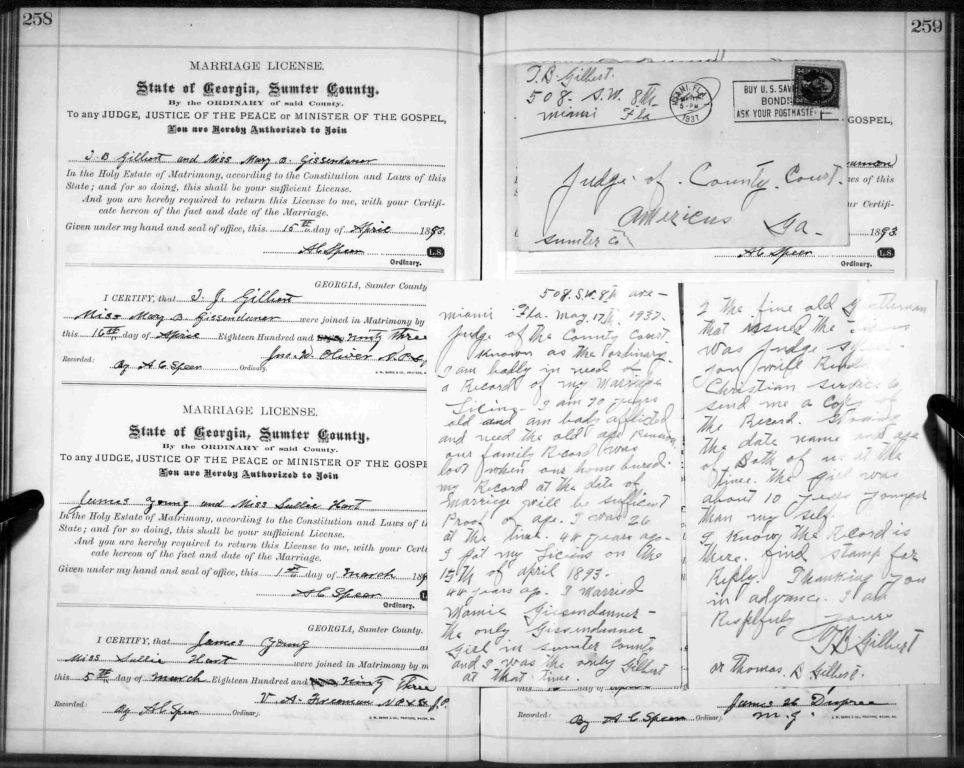 258
MARRIAGE LICENSE.
State of Georgia, Sumter County.
By the ORDINARY of said County.
To any JUDGE, JUSTICE OF THE PEACE or MINISTER OF THE GOSPEL,
You are Hereby Authorized to Join
T B Gilbert and Miss Mary B. Gissendaner
In the Holy Estate of Matrimony, according to the Constitution and Laws of this
State; and for so doing, this shall be your sufficient License.
And you are hereby required to return this License to me, with your Certifi-
cate hereon of the fact and date of the Marriage.
Given under my hand and seal of office, this 15th day of April 1893.
A C Speer L.S.
Ordinary.
GEORGIA, Sumter County
I CERTIFY, that T. J. Gilbert
Miss Mary B Gissendaner were joined in Matrimony by
this 16th day of April Eighteen Hundred and Ninty Three
Jno. W. Oliver N.P.
Recorded: By A C Speer Ordinary.
MARRIAGE LICENSE.
State of Georgia, Sumter County.
By the ORDINARY of said County.
To any JUDGE, JUSTICE OF THE PEACE or MINISTER OF THE GOSPE
You are Hereby Authorized to Join
James Young and Miss Sullie Hart
In the Holy Estate of Matrimony, according to the Constitution and Laws of t
State; and for so doing, this shall be your sufficient License.
And you are hereby required to return this License to me, with your Certi
cate hereon of the fact and date of the Marriage.
Given under my hand and seal of office, this 1st day of March 18
A C Speer
Ordinary.
GEORGIA, Sumter County.
I CERTIFY, that James Young
Miss Sullie Hart were joined in Matrimony by m
this 5th day of March Eighteen Hundred and Ninty Three
V. A. Freeman N.P. & J.P.
Recorded: By A C Speer Ordinary.
259
T. B. Gilbert.
508. S.W. 8th
miami Fla
MIAMI, FLA.
5-PM
1937
BUY U.S. SAV
BONDS
ASK YOUR POSTMASTE
Judge of County Court
Americus Ga-
Sumter Co
GOSPEL,
ws of this
ur Certifi-
1893
A C Speer L.S.
Ordinary.
508. S.W. 8th ave-
miami Fla. May 17th, 1937.
Judge of the County Court
Known as the ordinary
I am badly in need of
a Record of my Marriage
Licing. I am 70 years
old and am bady afflicted
and need the old age Pension.
our family Record was
lost when our home bured.
my Record at the date of
Marriage will be sufficent
Proof of age. I was 26
at the time. 44 years ago-
I got my Licins on the
15th of april 1893-
44 years ago. I married
Mamie Gissendanner-
the only Gissendanner
Girl in Sumter County
and I was the only Gilbert
at that time.
2 the fine old Gentleman
that issued the
was Judge
you will Kindly
Christian service to
send me a Copy of
the Record.
the date name and age
of Both of us at the
time. The girl was
about 10 years younger
than my self.
I Know the Record is
there. find stamp for
Reply. Thanking you
in advance. I am
Respfully yours
T B Gilbert
or Thomas. B Gilbert.
Recorded: By A C Speer Ordinary.
M. G.